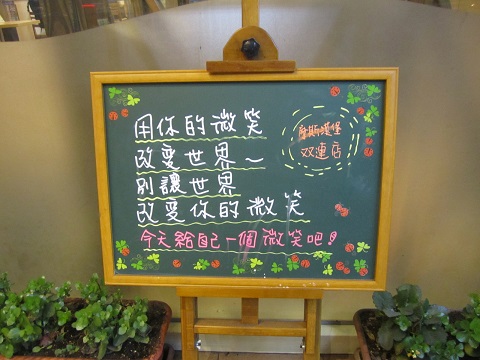 用你的微笑
改变世界~
別讓世界
改变你的微笑
今天給自己一個微笑吧!
摩斯漢堡
双連店